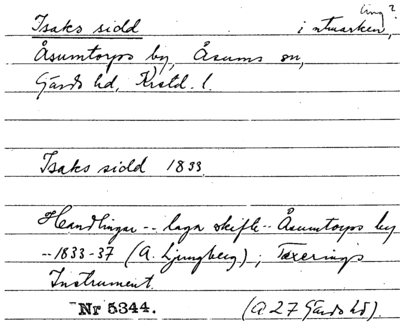 äng?
Isaks sidd i utmarken,
Åsumtorps by, Åsums sn,
Gärds hd, Krstd. l.
Isaks sidd 1833
Handlingar -- laga skifte -- Åsumtorps by
-- 1833-37 (A. Ljungberg); Taxerings
Instrument.
Nr 5344. (A 27 Gärds hd).